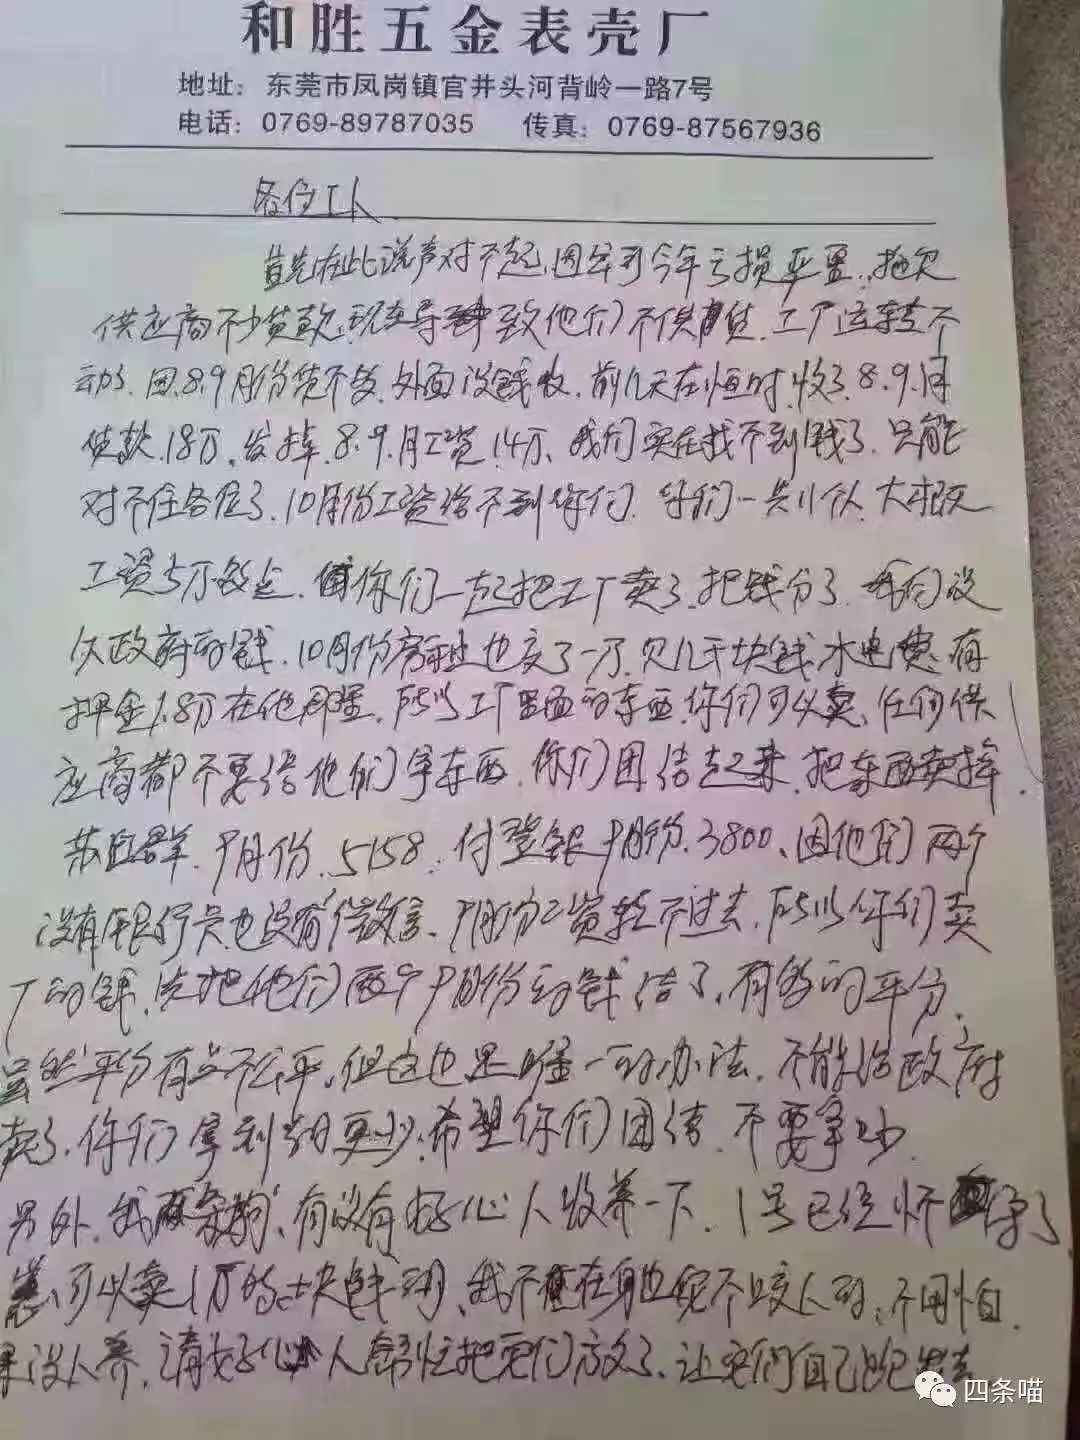 和胜五金表壳厂
地址：东莞市凤岗镇官井头河背岭一路7号
电话：0769-89787035 传真：0769-87567936
各位工人
首先在此说声对不起，因公司今年亏损严重，拖欠
供应商不少货款，现在导致他们不供货，工厂运转不
动了，因8.9月份货不多，外面没钱收，前几天在恒时收了8.9.月
货款.18万，发掉.8.9.月工资.14万、我们实在找不到钱了.只能
对不住各位了.10月份工资给不到你们.你们一共11个人，大概
工资5万多点.你们一起把工厂卖了.把钱分了.我们没
欠政府的钱.10月份房租也交了一万.欠几千块钱水电费.有
押金1.8万在他那里.所以工厂里面的东西你们可以卖.任何供
应商都不要给他们拿东西.你们团结起来.把东西卖掉.
群.9月份.5158.付登银9月份.3800、因他们两个
没有银行卡也没有微信、9月份工资转不过去.所以你们卖
厂的钱，先把他们两个9月份的钱结了、有多的平分.
虽然平分有点不公平，但这也是唯一的办法.不能给政府
卖了.你们拿到的更少.希望你们团结.不要拿少
另外.我两条狗、有没有好心人收养一下.1号已经怀孕了
可以卖1万的、我不在身边它不咬人的、不用怕.
果没人养.请好心人帮忙把它们放了.让它们自己跑出去
四条喵